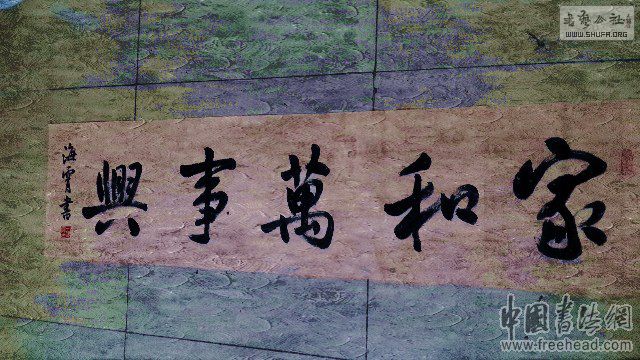 家和萬事興
海霄書
WWW.SHUFA.ORG
中國書法網
www.freehead.com